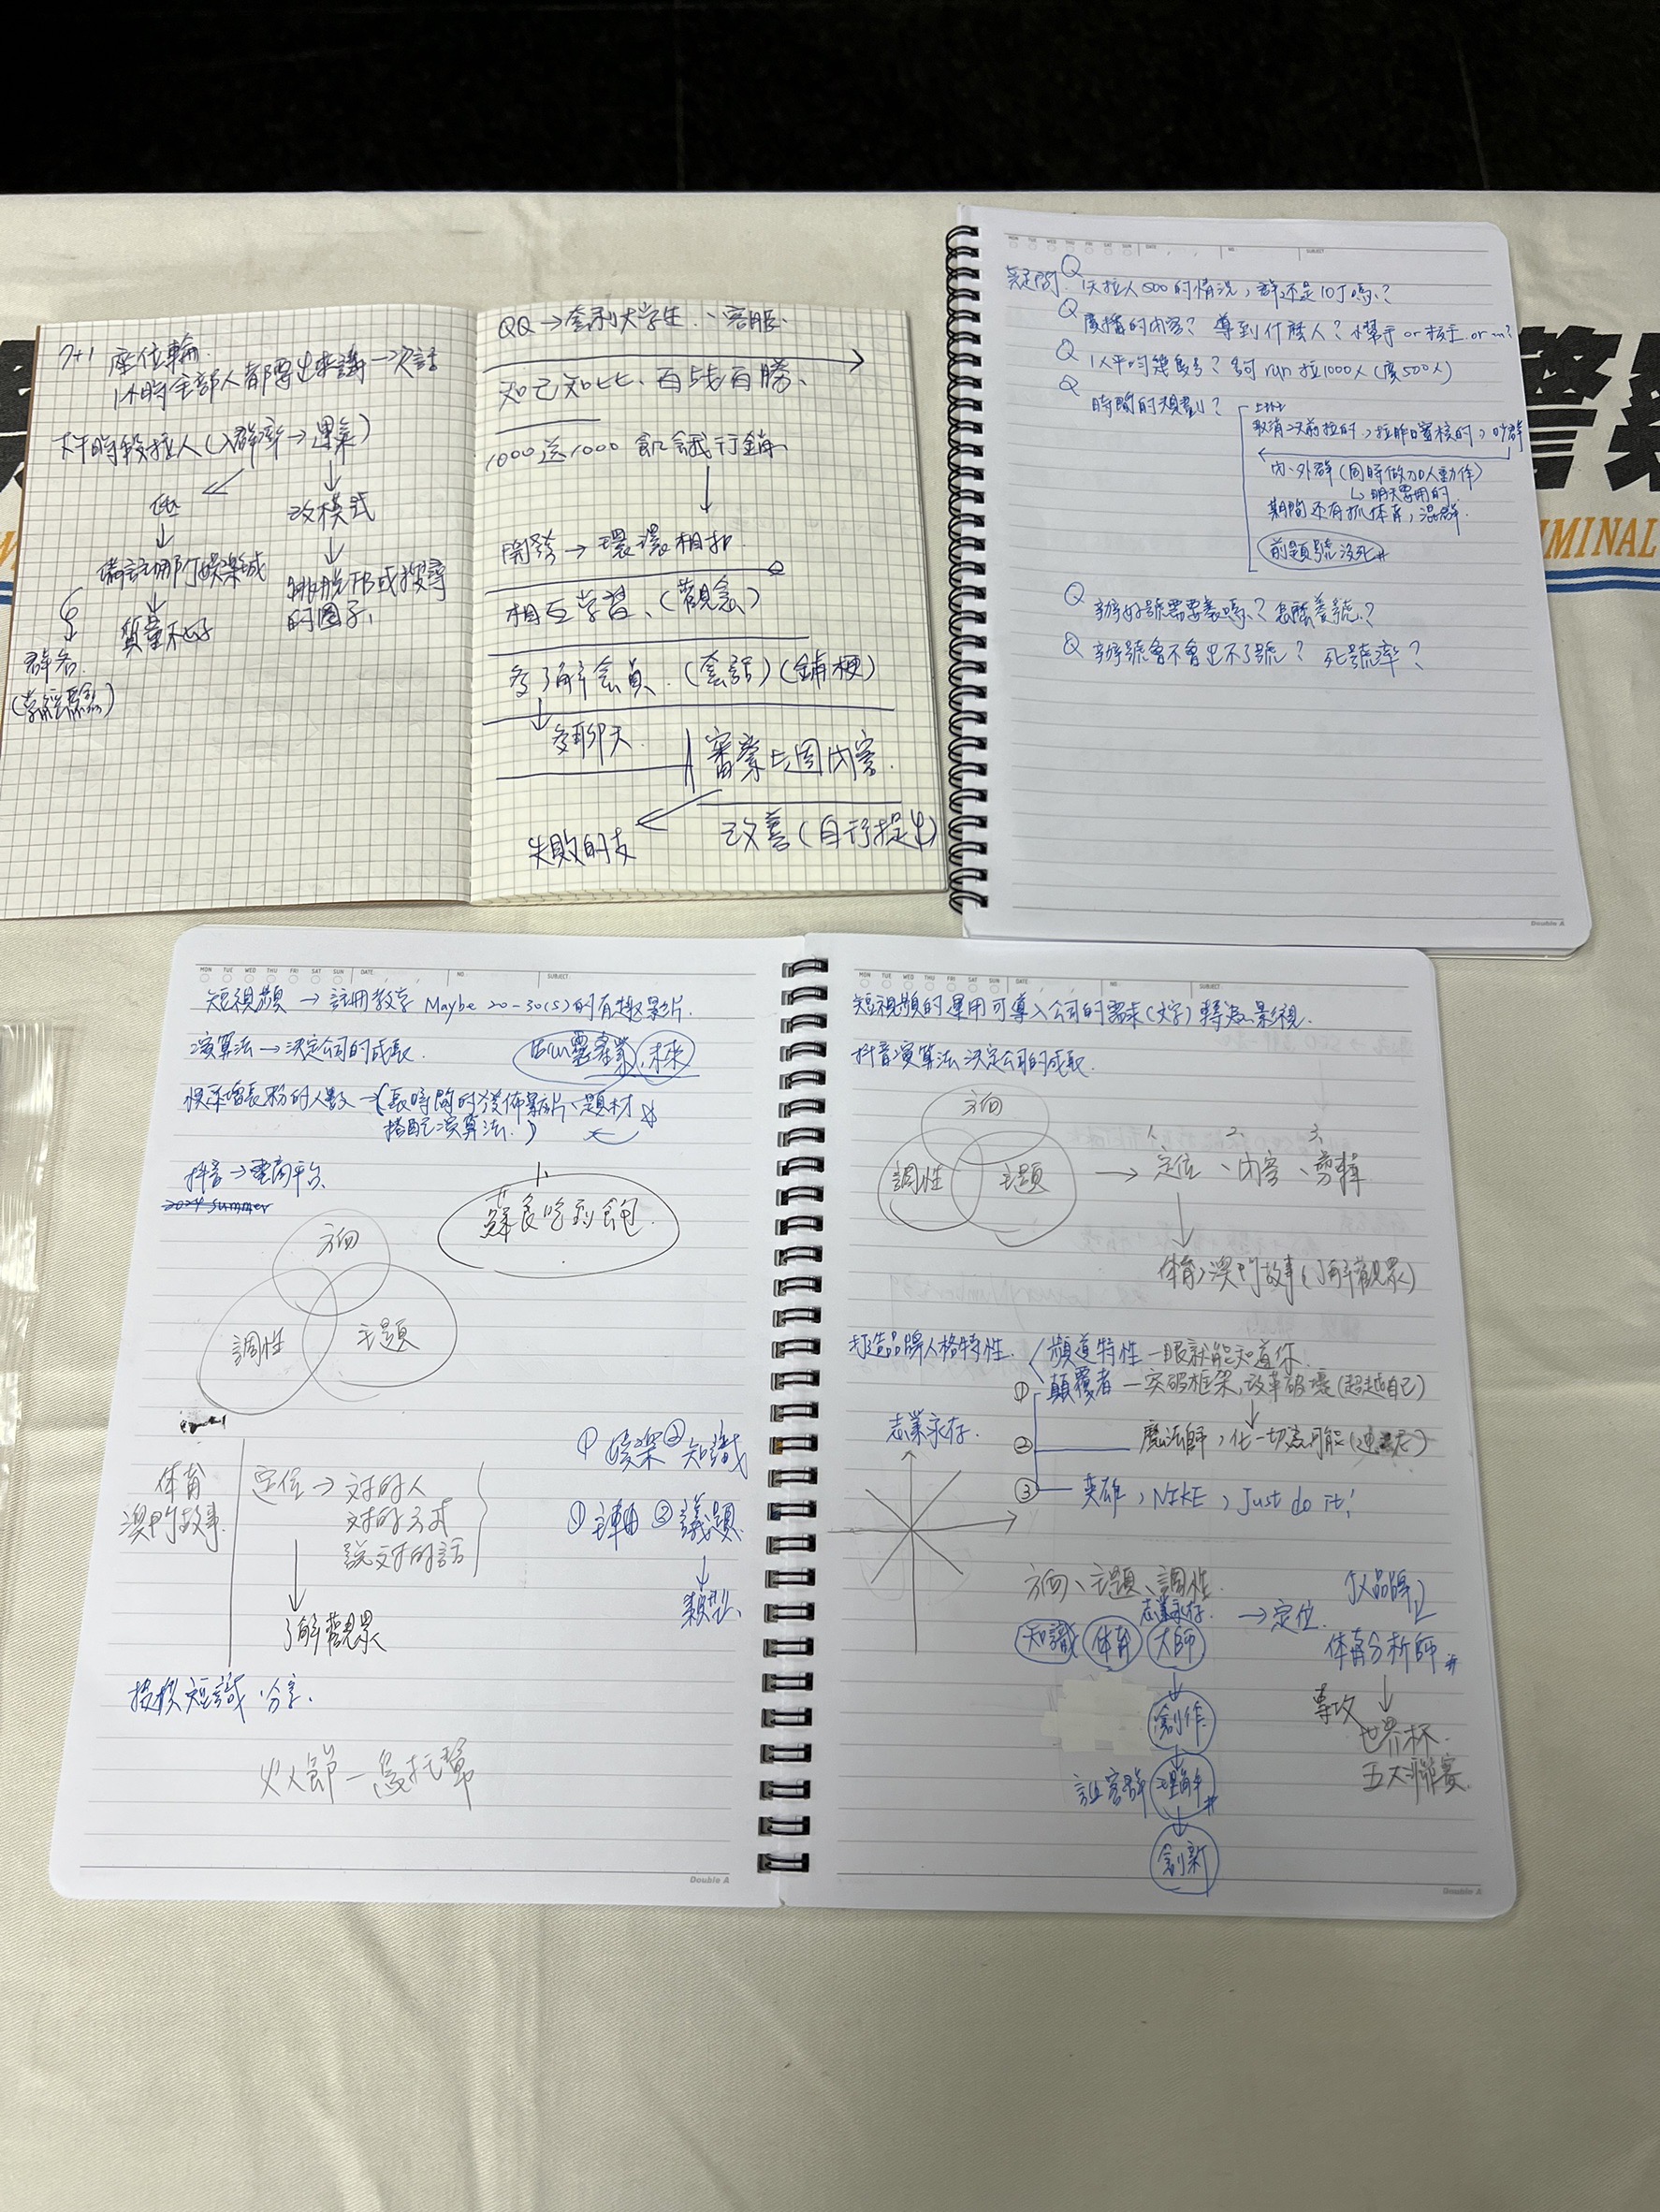 7+1 座位輪.
1小時全部人都要出來講一次話
不同時段拉人(入群率→運氣)
低
改模式
備註哪個娛樂城
質量不好
排脫FB或搜尋
的圈子.
群名.
QQ→套利大学生.、客服.
知己知比、百战百勝、
1000送1000 飢餓行銷、
開發→環環相扣.
相互学習、(觀念)
多了解会員.(套話)(鋪梗)
多聊天.
審察上周内容.
改善(自行提出)
失敗的支
MON TUE WED THU FRI SAT SUN DATE NO. SUBJECT
疑問.
Q 1天拉人500的情況,群还是10个嗎?
Q 廣播的内容? 導到什麼人? 小幫手 or 板主. or m?
Q 1人平均幾隻号? 可 run 拉1000人(廣500人)
Q 時間的規劃?
上班
取消次前拉的,拉昨日審核的,吵群
内、外群(同時做加人動作)
明天要用的
期間还有抓体育,混群.
前題號沒死#
Q 辦好號需要養嗎? 怎麼養號?
Q 辦號會不會出不了號? 死號率?
Double A
警察
CRIMINAL
MON TUE WED THU FRI SAT SUN DATE NO. SUBJECT
短視頻 → 註冊教学 Maybe 20-30(s)的有趣影片.
演算法→決定公司的成敗.
未來
快速增長粉的人數→(長時間的發佈影片、題材
搭配演算法.)
抖音→電商平台
2024 summer
蔬食吃到飽.
方向
調性
主題
体育
澳門故事.
定位→ 对的人
对的方式
說对的話
了解觀眾
① 娛樂 ② 知識
① 主軸 ② 議題
類型、
技校短識、分享.
Double A
MON TUE WED THU FRI SAT SUN DATE NO. SUBJECT
短視頻的運用可導入公司的需求(文字)轉為影視.
抖音演算法決定公司的成敗.
方向
調性
主題
1. 2. 3.
→ 定位、内容、剪輯
体育,澳門故事(了解觀眾)
打造品牌人格特性.
頻道特性 一眼就能知道你.
① 顛覆者 — 突破框架,改革破壞(超越自己)
② 魔法師,化一切為可能
③ 英雄,NIKE,Just do it!
志業永存.
方向、主題、調性.
志業永存.
知識 体育 大師
→定位.
仅品牌
体育分析師#
專攻
世界杯.
五大聯賽.
創作
理解#
創新
Double A